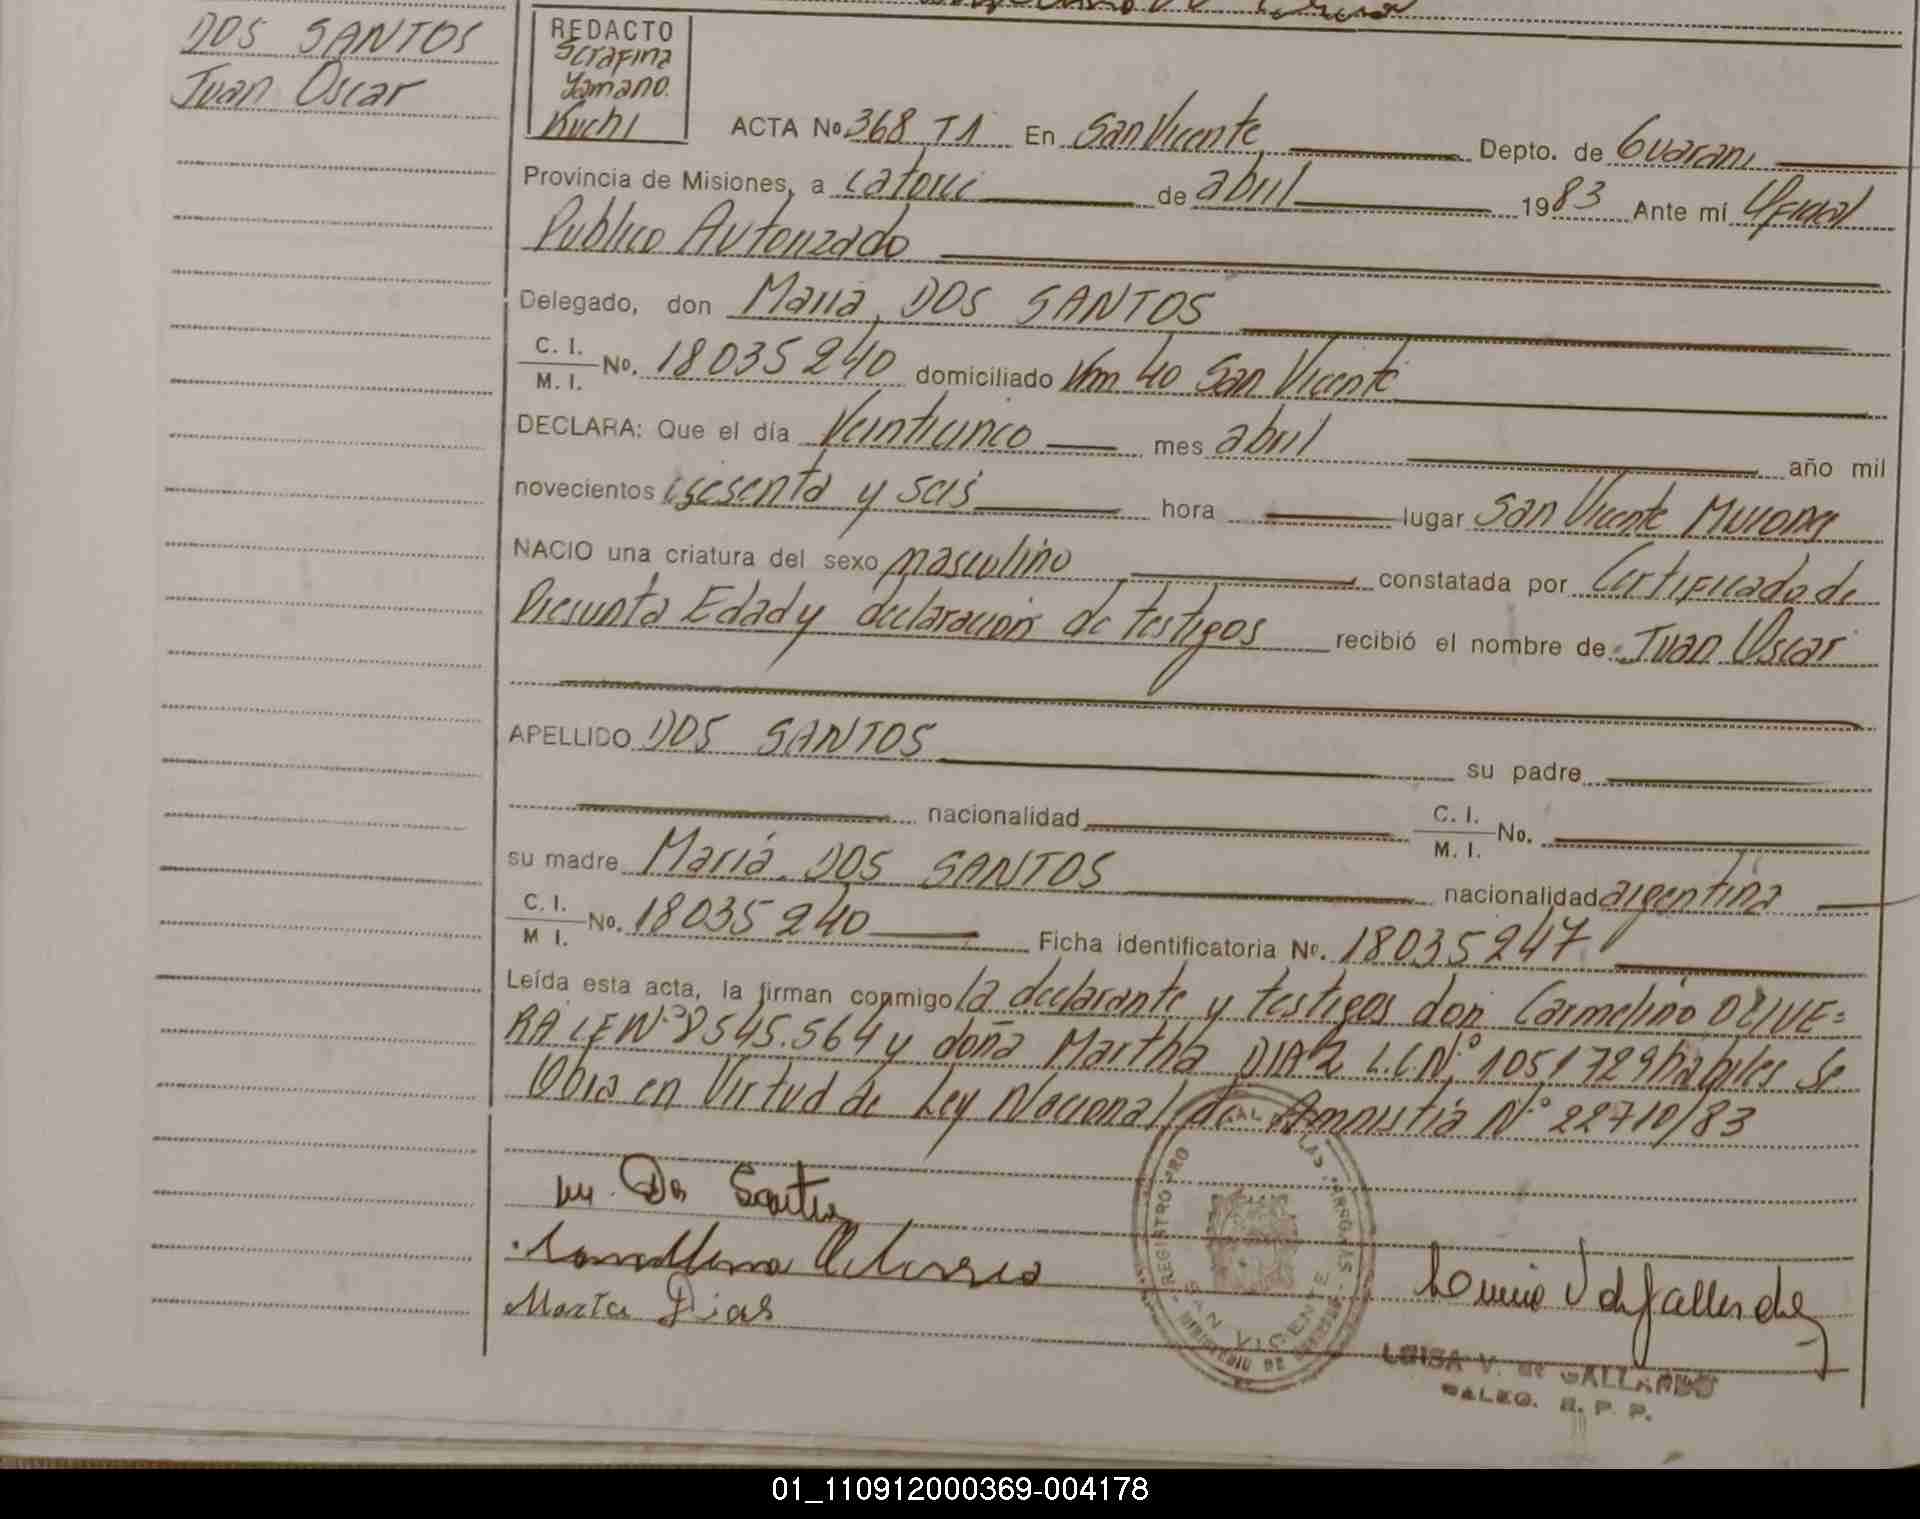 DOS SANTOS
Juan Oscar
REDACTO
Serafina
Yamano.
Kuchi
ACTA No 368 T1 En San Vicente Depto. de Guarani
Provincia de Misiones, a catorce de abril 1983 Ante mí Oficial
Publico Autorizado
Delegado, don Maria DOS SANTOS
C. I. / M. I. No. 18035240 domiciliado Km 40 San Vicente
DECLARA: Que el día Veinticinco mes abril año mil
novecientos sesenta y seis hora lugar San Vicente Misiones
NACIO una criatura del sexo masculino constatada por Certificado de
Presunta Edad y declaracion de testigos recibió el nombre de Juan Oscar
APELLIDO DOS SANTOS su padre
nacionalidad C. I. / M. I. No.
su madre Maria DOS SANTOS nacionalidad argentina
C. I. / M I. No. 18035240 Ficha identificatoria No. 18035247
Leída esta acta, la firman conmigo la declarante y testigos don Carmelino OLIVE=
RA LE Nº 8545.564 y doña Martha DIAZ L.C Nº 1051729 habiles Se
Obra en Virtud de Ley Nacional de Amnistia Nº 22710/83
M. Dos Santos
Marta Dias
REGISTRO PRO
SAN VICENTE
LUISA V. de GALLARDO
DELEG. R. P. P.
01_110912000369-004178